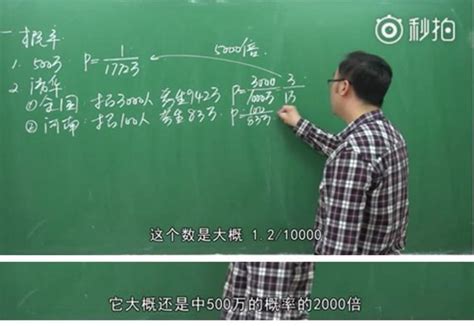 秒拍
一 求概率
1. 500万 P=1/1772万 5000倍
2 清华
①全国:招3000人 考生942万 P=3000/1000万 3/1万
②河南:招100人 考生83万 P=100/83万
这个数是大概 1.2/10000
它大概还是中500万的概率的2000倍